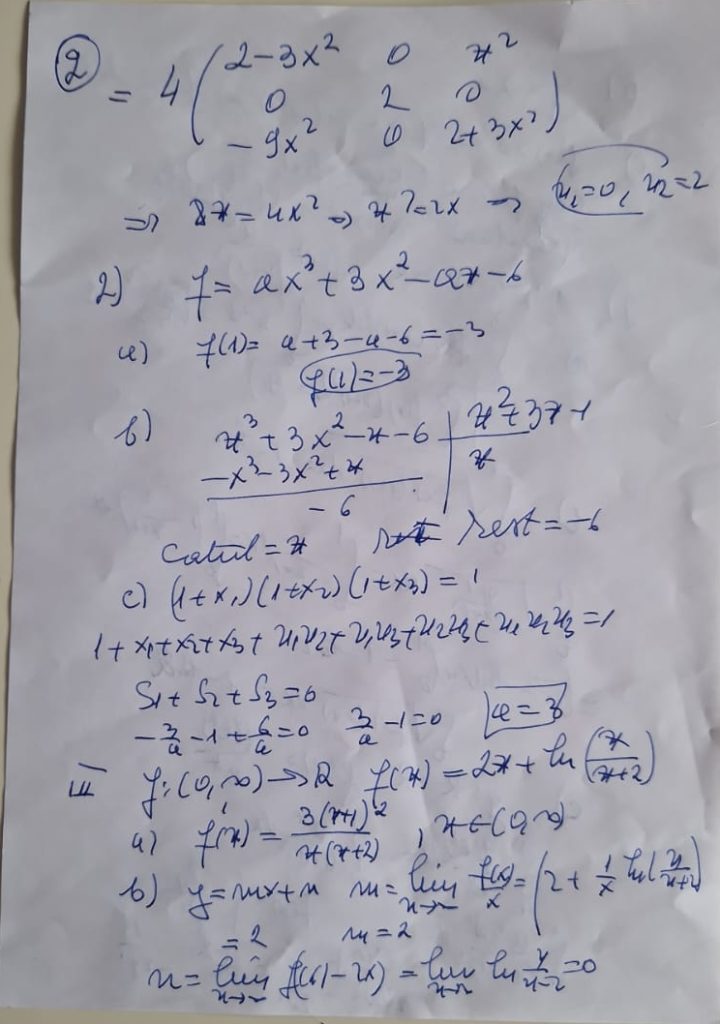 ②
= 4 ( 2-3x² 0 x²
0 2 0
-9x² 0 2+3x² )
⇒ 8x = 4x² ⇒ x²=2x → x₁=0, x₂=2
2) f = ax³+3x²-ax-6
a) f(1)= a+3-a-6=-3
f(1)=-3
b) x³+3x²-x-6 | x²+3x-1
-x³-3x²+x | x
-6
Catul = x rest = -6
c) (1+x₁)(1+x₂)(1+x₃) = 1
1+x₁+x₂+x₃+x₁x₂+x₁x₃+x₂x₃+x₁x₂x₃=1
S₁+S₂+S₃=0
-3/a -1 + 6/a = 0 3/a -1=0 a=3
III f:(0,∞)→R f(x) = 2x + ln(x/(x+2))
a) f'(x) = 3(x+1)²/(x(x+2)) , x∈(0,∞)
b) y=mx+n m= lim x→∞ f(x)/x = (2 + 1/x ln(x/(x+2))
= 2 m = 2
n= lim x→∞ f(x)-2x) = lim x→∞ ln x/(x-2) =0